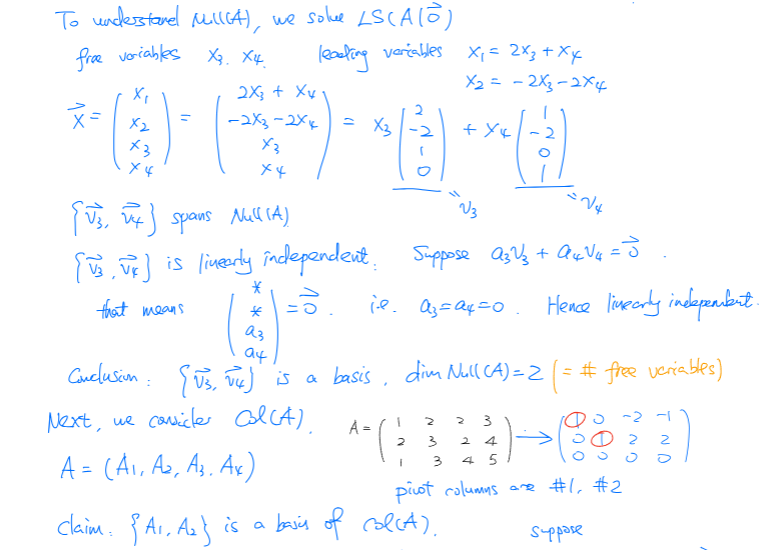 To understand Null(A), we solve LS(A|0⃗)
free variables x₃, x₄. leading variables x₁ = 2x₃ + x₄
x₂ = -2x₃ - 2x₄
x⃗ = (x₁ x₂ x₃ x₄) = (2x₃ + x₄ -2x₃ - 2x₄ x₃ x₄) = x₃ (2 -2 1 0) + x₄ (1 -2 0 1)
= v₃ = v₄
{v⃗₃, v⃗₄} spans Null(A)
{v⃗₃, v⃗₄} is linearly independent. Suppose a₃v₃ + a₄v₄ = 0⃗.
that means (* * a₃ a₄) = 0⃗. i.e. a₃ = a₄ = 0. Hence linearly independent.
Conclusion: {v⃗₃, v⃗₄} is a basis, dim Null(A) = 2 (= # free variables)
Next, we consider Col(A). A = (1 2 2 3 2 3 2 4 1 3 4 5) → (1 0 -2 -1 0 1 2 2 0 0 0 0)
A = (A₁, A₂, A₃, A₄)
pivot columns are #1, #2
Claim: {A₁, A₂} is a basis of Col(A). suppose